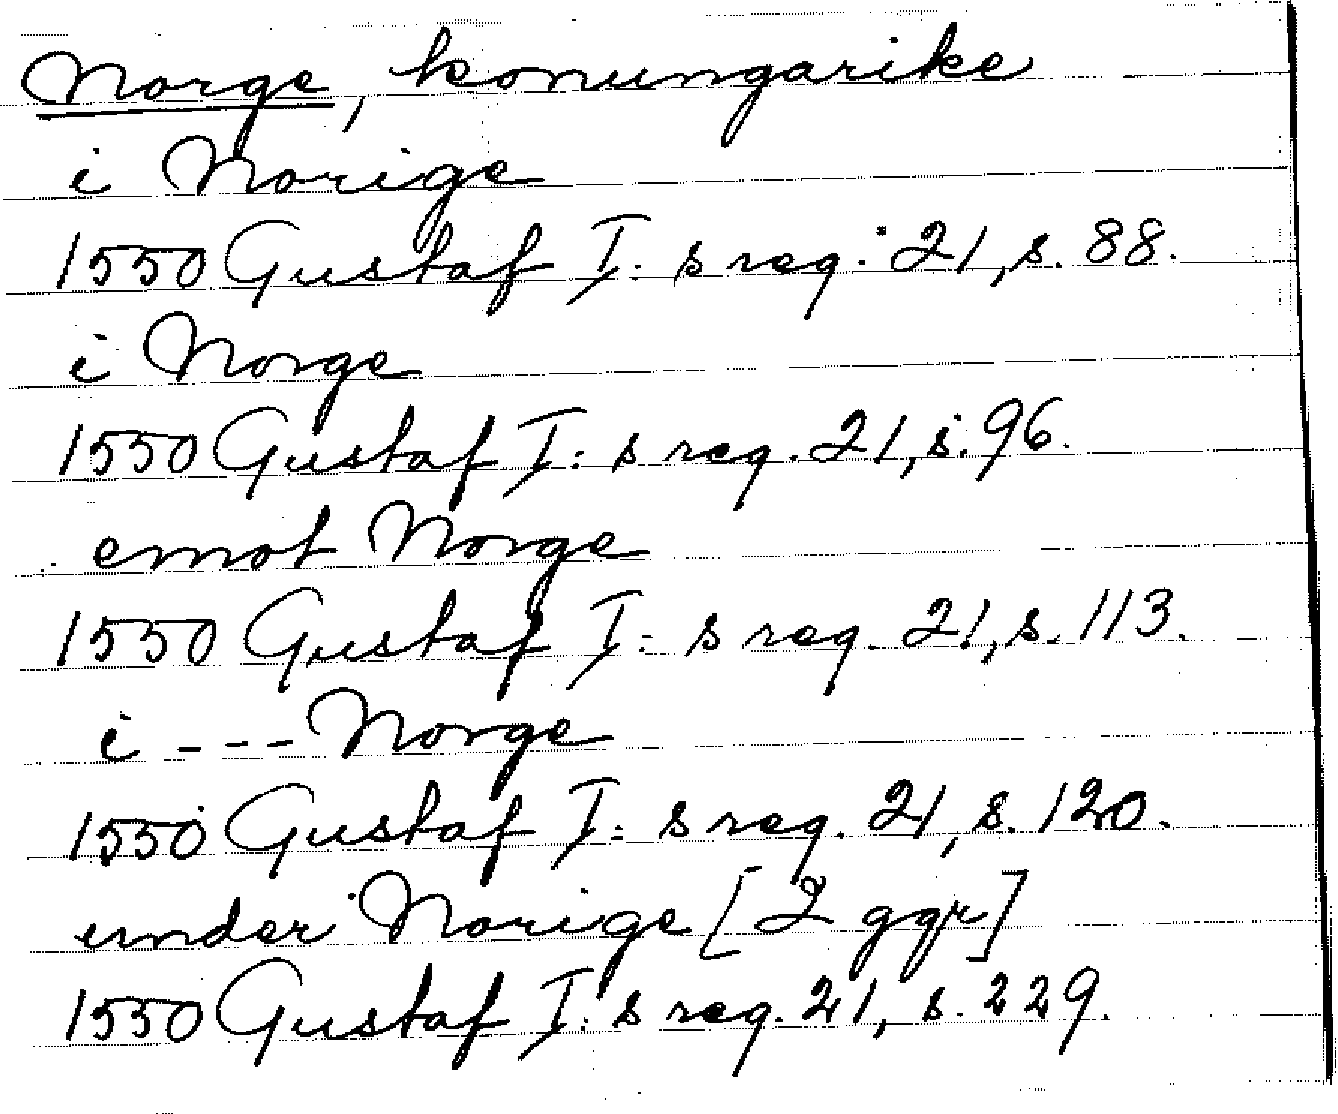 Norge, konungarike
i Norige
1550 Gustaf I: s reg. 21, s. 88.
i Norge
1550 Gustaf I: s reg. 21, s. 96.
emot Norge
1550 Gustaf I: s reg. 21, s. 113.
i --- Norge
1550 Gustaf I: s reg. 21, s. 120.
under Norige [2 ggr]
1550 Gustaf I: s reg. 21, s. 229.